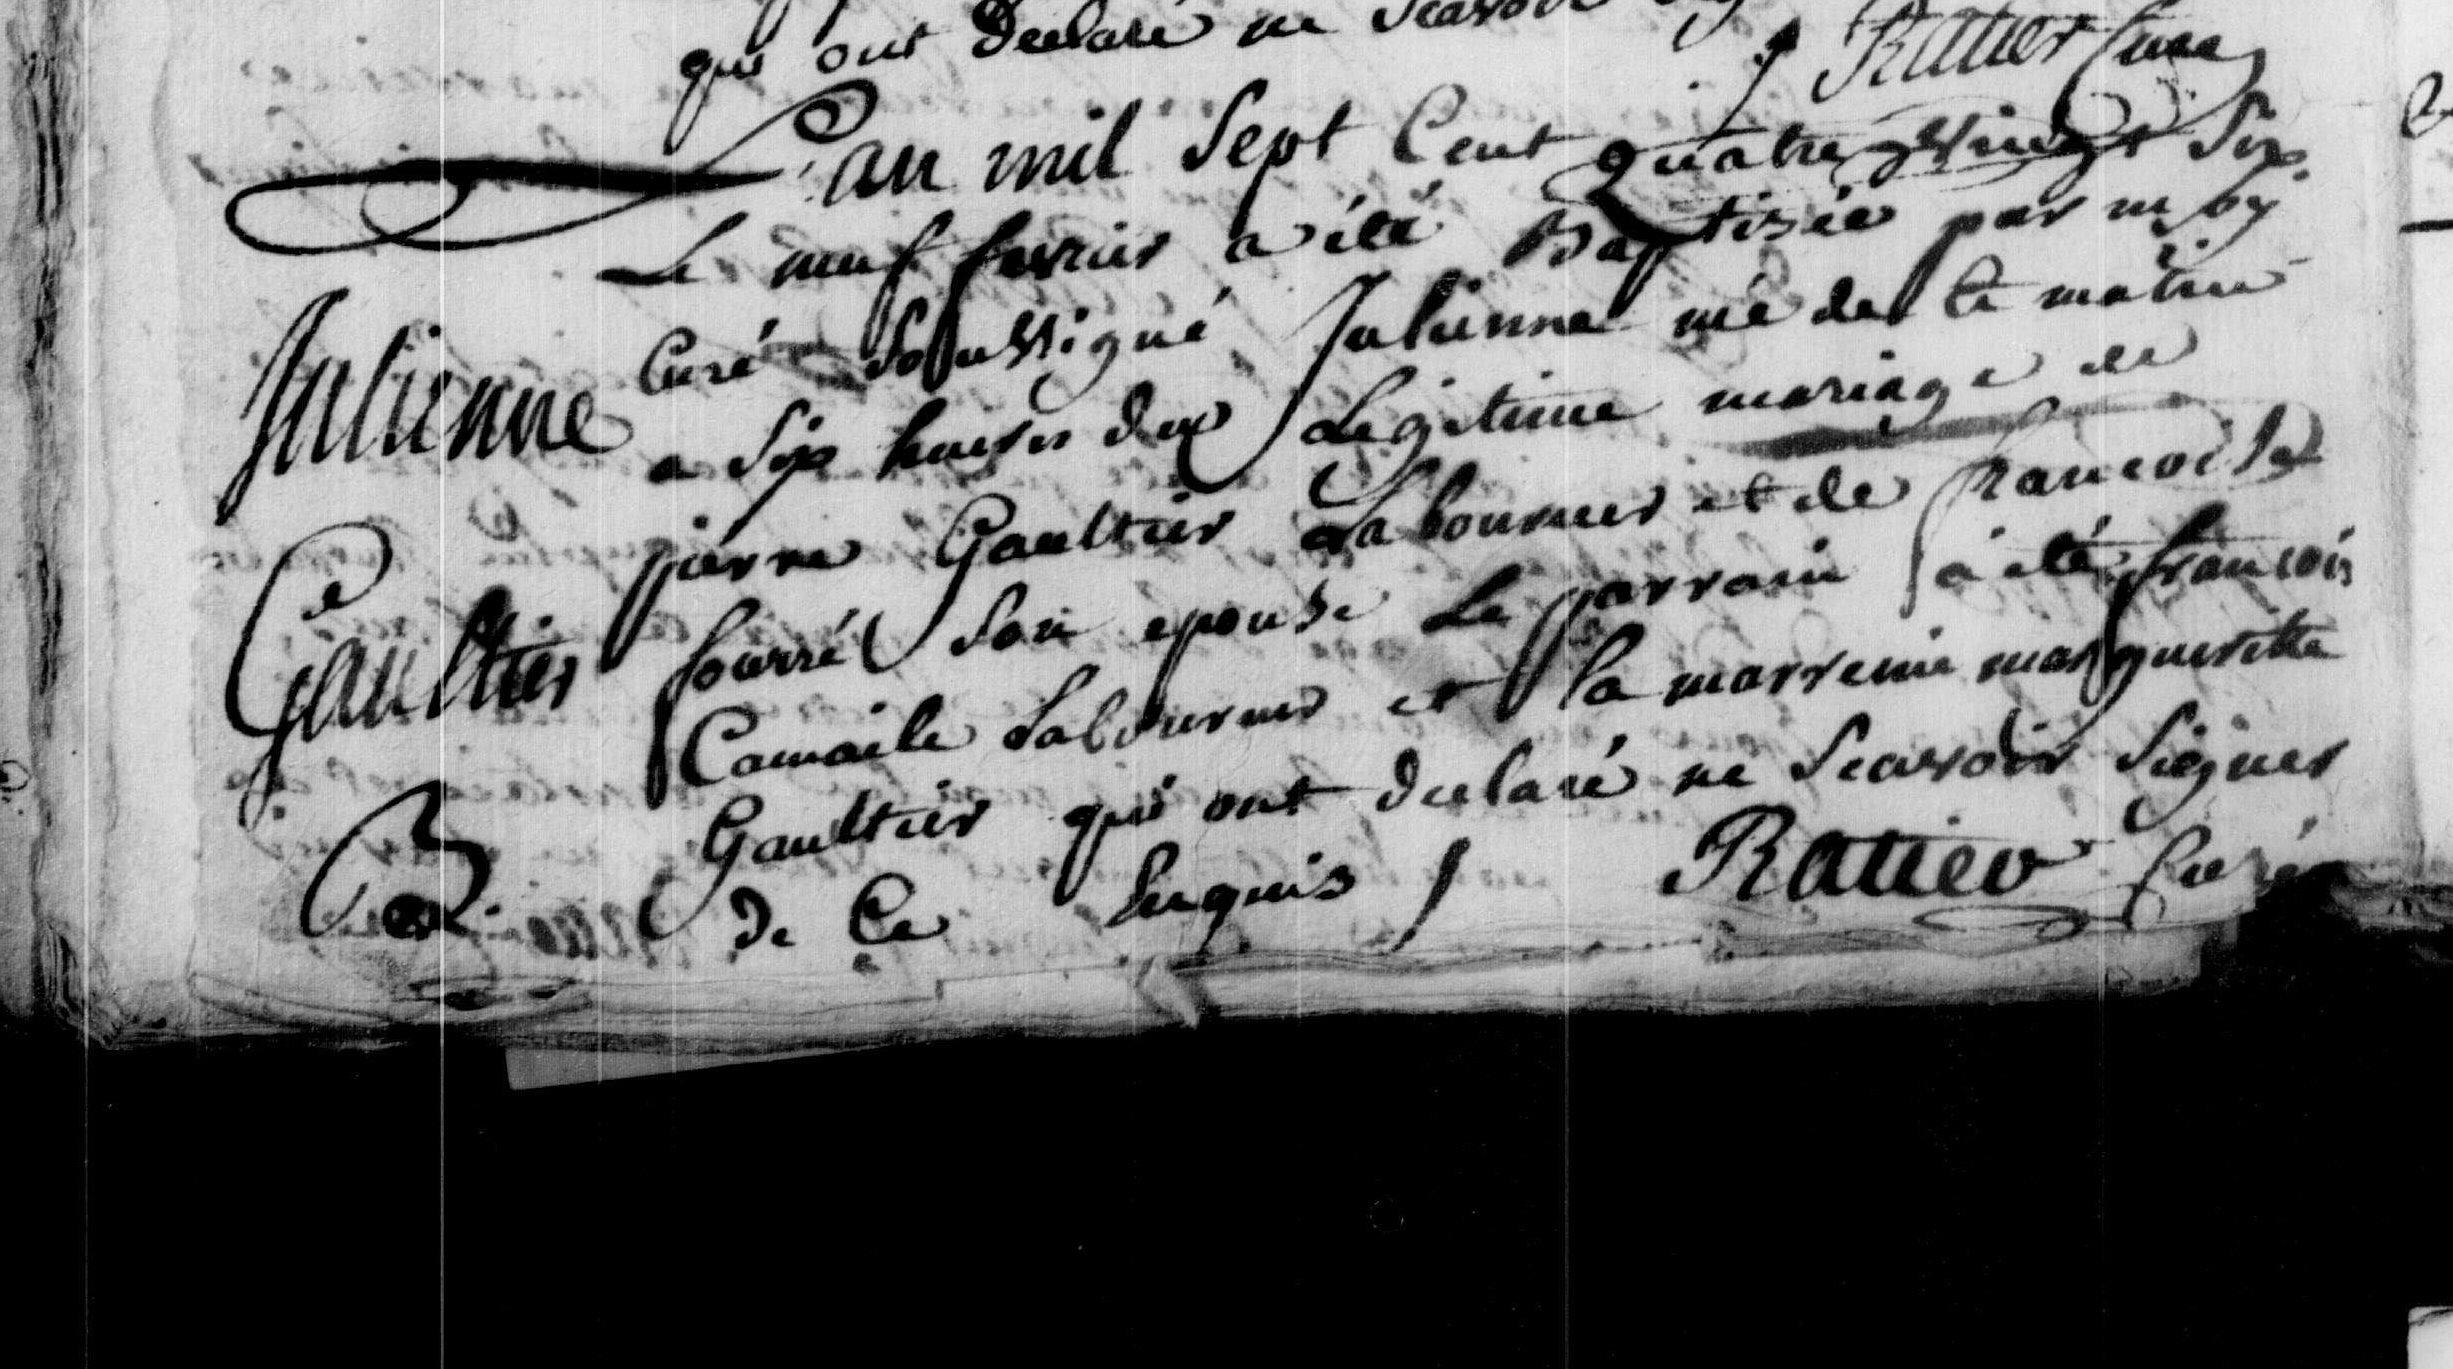 qui ont declaré ne scavoir
Ratier Curé
L'an mil Sept Cent quatre Vingt Six
Le neuf fevrier a été Baptisée par m oy
Curé Soussigné Julienne née de ce matin
a Six heures du Legitime mariage de
pierre Gaultier Laboureur et de francoise
fourré Son epouse Le parrain a été francois
Camaile Laboureur et la marreine margueritte
Gaultier qui ont declaré ne Scavoir Signer
de Ce Enquis
Ratier Curé
Julienne
Gaultier